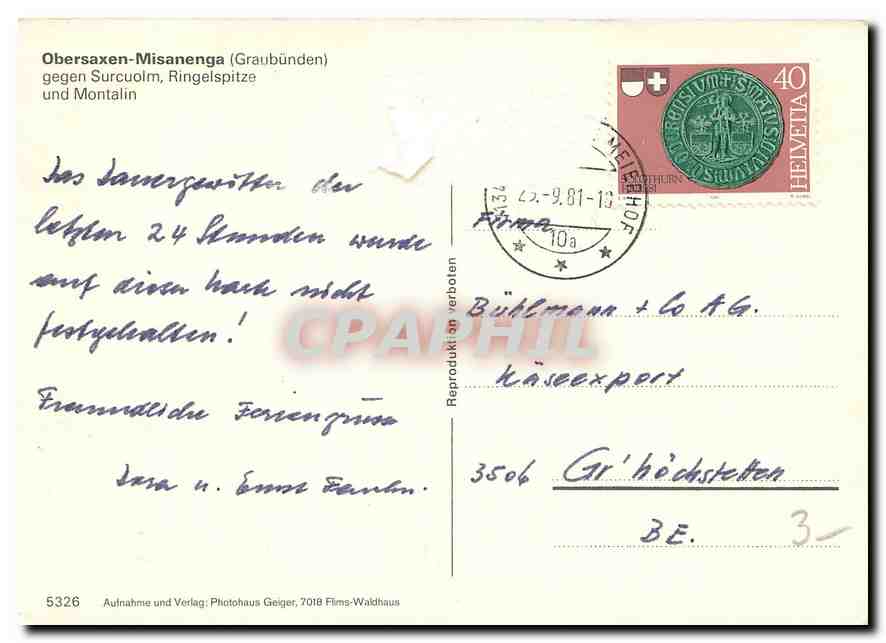 Obersaxen-Misanenga (Graubünden)
gegen Surcuolm, Ringelspitze
und Montalin
Das Dauergewitter der
letzten 24 Stunden wurde
auf dieser Karte nicht
festgehalten!
Freundliche Feriengrüsse
u. Ernst
5326 Aufnahme und Verlag: Photohaus Geiger, 7018 Flims-Waldhaus
Reproduktion verboten
CPAPHIL
40
HELVETIA
SOLOTHURN
1481
134 MEIERHOF
-9.81-18
10a
Firma
Bühlmann + Co AG.
Käseexport
3506 Gr'höchstetten
BE.
3-